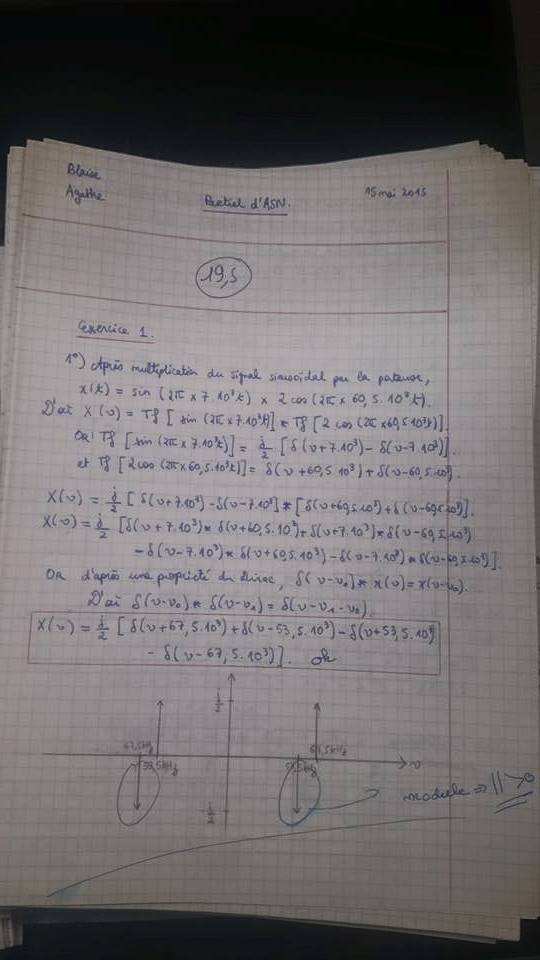 Blaise
Agathe
Partiel d'ASN.
15 mai 2015
19,5
Exercice 1.
1°) Après multiplication du signal sinusoïdal par la porteuse,
x(t) = sin (2π x 7.10³t) x 2 cos (2π x 60,5.10³t).
D'où X(ν) = Tf [ sin (2π x 7.10³t)] * Tf [ 2 cos (2π x 60,5.10³t)]
OR: Tf [sin (2π x 7.10³t)] = j/2 [δ(ν+7.10³) - δ(ν-7.10³)].
et Tf [2cos (2π x 60,5.10³t)] = δ(ν+60,5.10³) + δ(ν-60,5.10³).
X(ν) = j/2 [ δ(ν+7.10³) - δ(ν-7.10³)] * [δ(ν+60,5.10³) + δ(ν-60,5.10³)].
X(ν) = j/2 [δ(ν+7.10³) * δ(ν+60,5.10³) + δ(ν+7.10³) * δ(ν-60,5.10³)
- δ(ν-7.10³) * δ(ν+60,5.10³) - δ(ν-7.10³) * δ(ν-60,5.10³)].
OR d'après une propriété du Dirac, δ(ν-ν₀) * x(ν) = x(ν-ν₀).
D'où δ(ν-ν₀) * δ(ν-ν₁) = δ(ν-ν₁-ν₀).
X(ν) = j/2 [ δ(ν+67,5.10³) + δ(ν-53,5.10³) - δ(ν+53,5.10³)
- δ(ν-67,5.10³)]. ok
j/2
67,5kHz
53,5kHz
53,5kHz
67,5kHz
ν
-j/2
module => || > 0